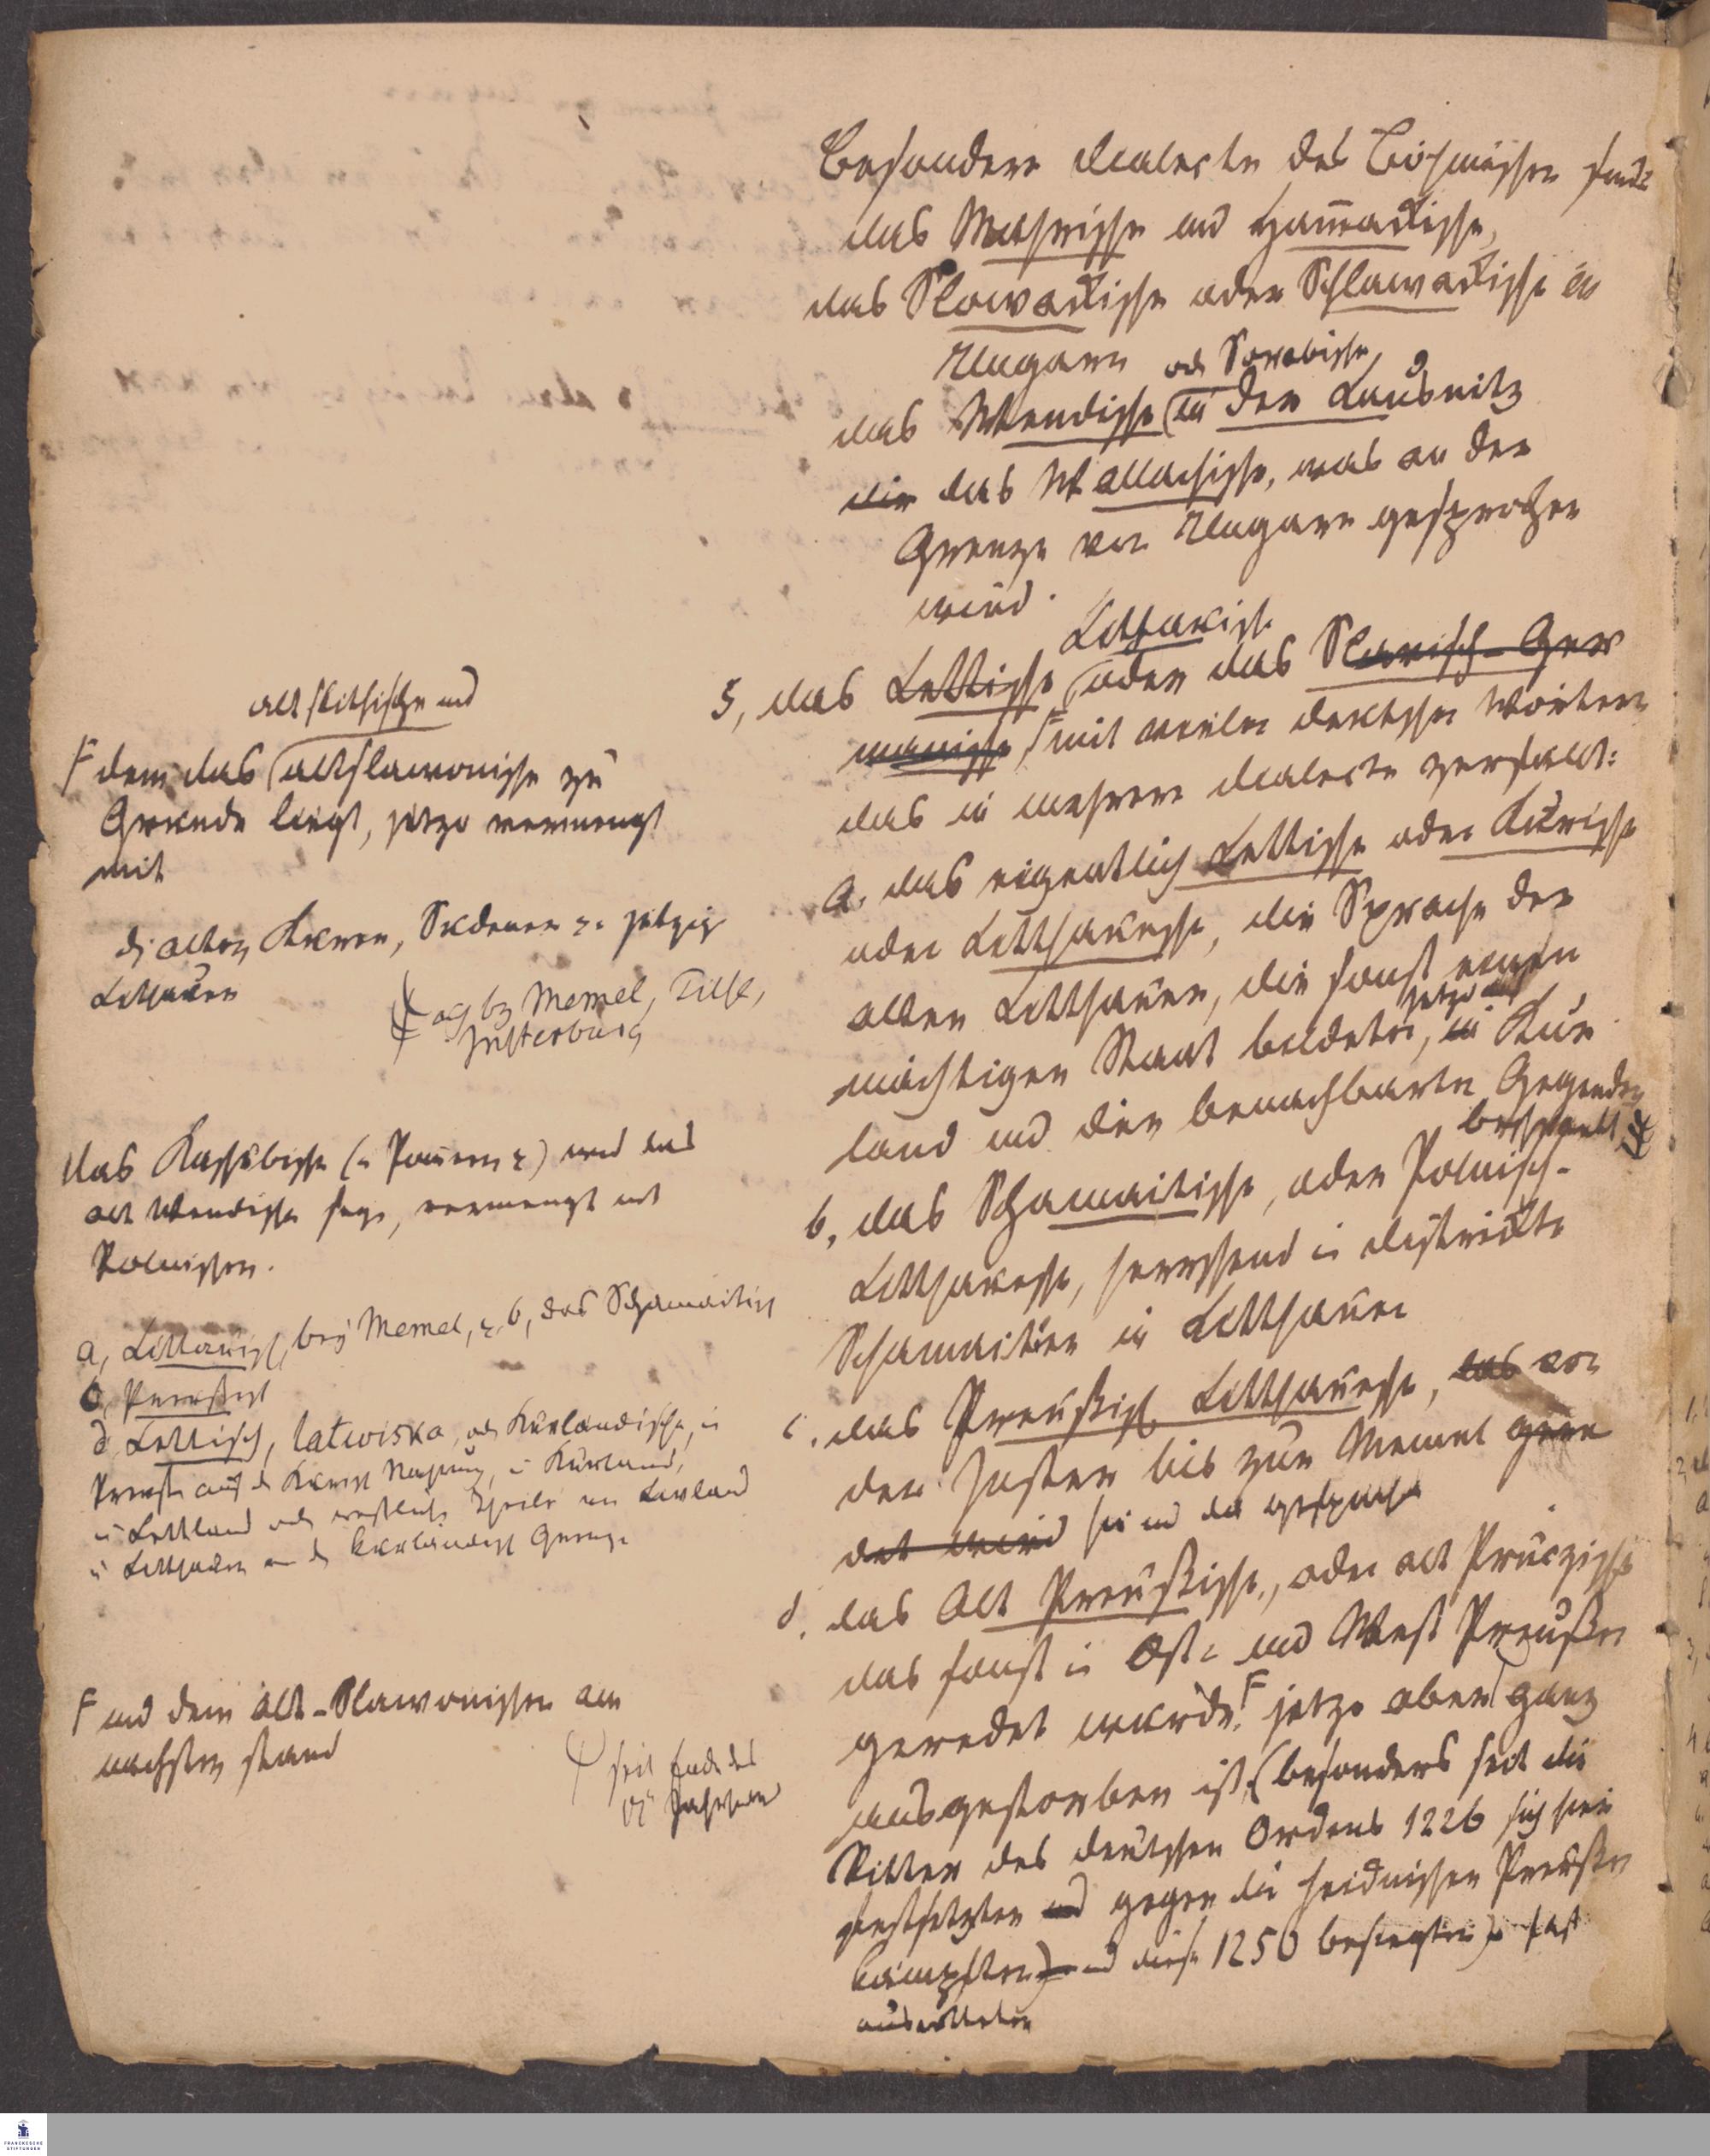 Besondere Dialecte des Böhmischen sind:
das Mährische und Hannackische,
das Slowackische oder Schlawackische in
Ungarn
od Sorabische
das Wendische in der Lausnitz
die das Wallachische, was an der
Grenze von Ungarn gesprochen
wird.
Litthauische
5, das Lettische oder das Slavisch-Ger
manische, F mit vielen deutschen Wörtern
das in mehrere Dialecte zerfällt:
a. das eigentlich Lettische oder Kurische
oder Litthauische, die Sprache der
alten Litthauer, die sonst einen
mächtigen Staat bildeten, jetzo in Kur
land und den benachbarten Gegenden
b, das Schamaitische, oder Polnisch-
Litthauische, herrschend in Districkte
Schamaiten in Litthauen
c. das Preußisch Litthauische, das von
der Inster bis zur Memel gere
det wird
d. das Alt Preußische, oder alt Pruczische
das sonst in Ost- und West Preußen
geredet wurde, F jetzo aber ganz
ausgestorben ist, (besonders seit die
Ritter des deutschen Ordens 1226 sich hier
festsetzten und gegen die heidnischen Preußen
kämpften) und diese 1250 besiegten) fast
ausrotteten
alt skithische und
F dem das altslawonische zu
Grunde liegt, jetzo vermengt
mit
d alten Kuren, Sudauer u. jetzige
Lithauer
Memel, Tilse,
Insterburg
das Kassubische (in Pommern) und das
alt Wendische sey, vermengt mit
Polnischen.
a, Littauisch, bey Memel, u. b, das Schamaitisch
c, Preußisch
d, Lettisch, latwiska, od Kurländische, in
Preuß auf d Kurisch Nehrung, in Kurland,
in Lettland od westliche Theile von Livland
in Litthauen an d kurländisch Grenze
F und dem alt-Slawonischen am
nächsten stand
seit Ende des
17 Jahrhund
FRANCKESCHE
STIFTUNGEN